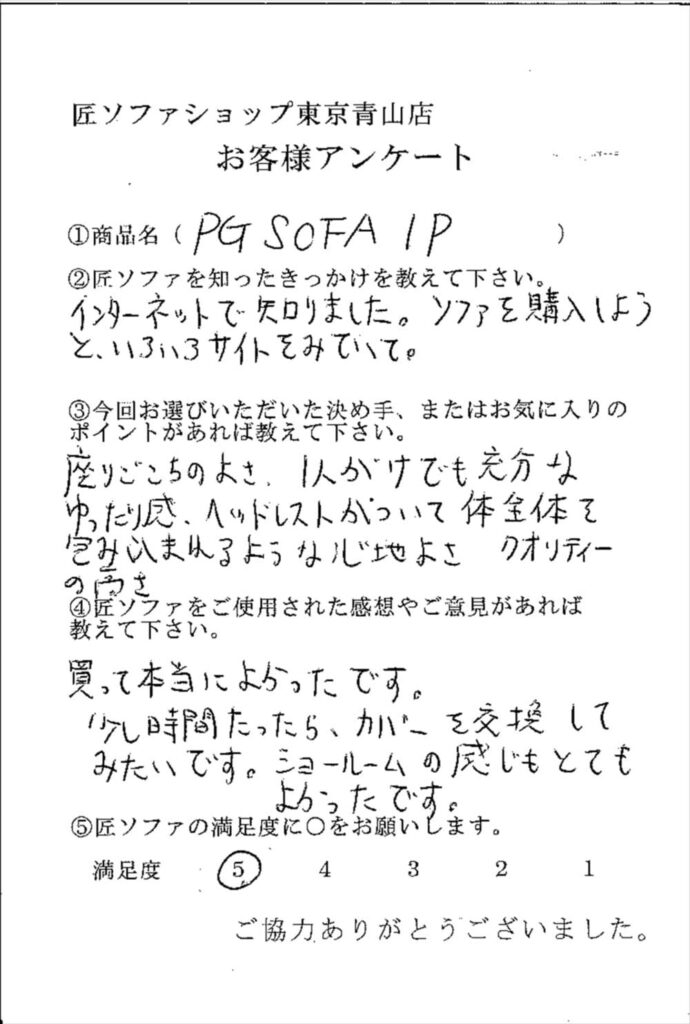 匠ソファショップ東京青山店
お客様アンケート
①商品名（ PG SOFA 1P ）
②匠ソファを知ったきっかけを教えて下さい。
インターネットで知りました。ソファを購入しよう
と、いろいろサイトをみていて。
③今回お選びいただいた決め手、またはお気に入りの
ポイントがあれば教えて下さい。
座りごこちのよさ、1人がけでも充分な
ゆったり感、ヘッドレストがついて体全体を
包み込まれるような心地よさ クオリティー
の高さ
④匠ソファをご使用された感想やご意見があれば
教えて下さい。
買って本当によかったです。
少し時間たったら、カバーを交換して
みたいです。ショールームの感じもとても
よかったです。
⑤匠ソファの満足度に〇をお願いします。
満足度 5 4 3 2 1
ご協力ありがとうございました。